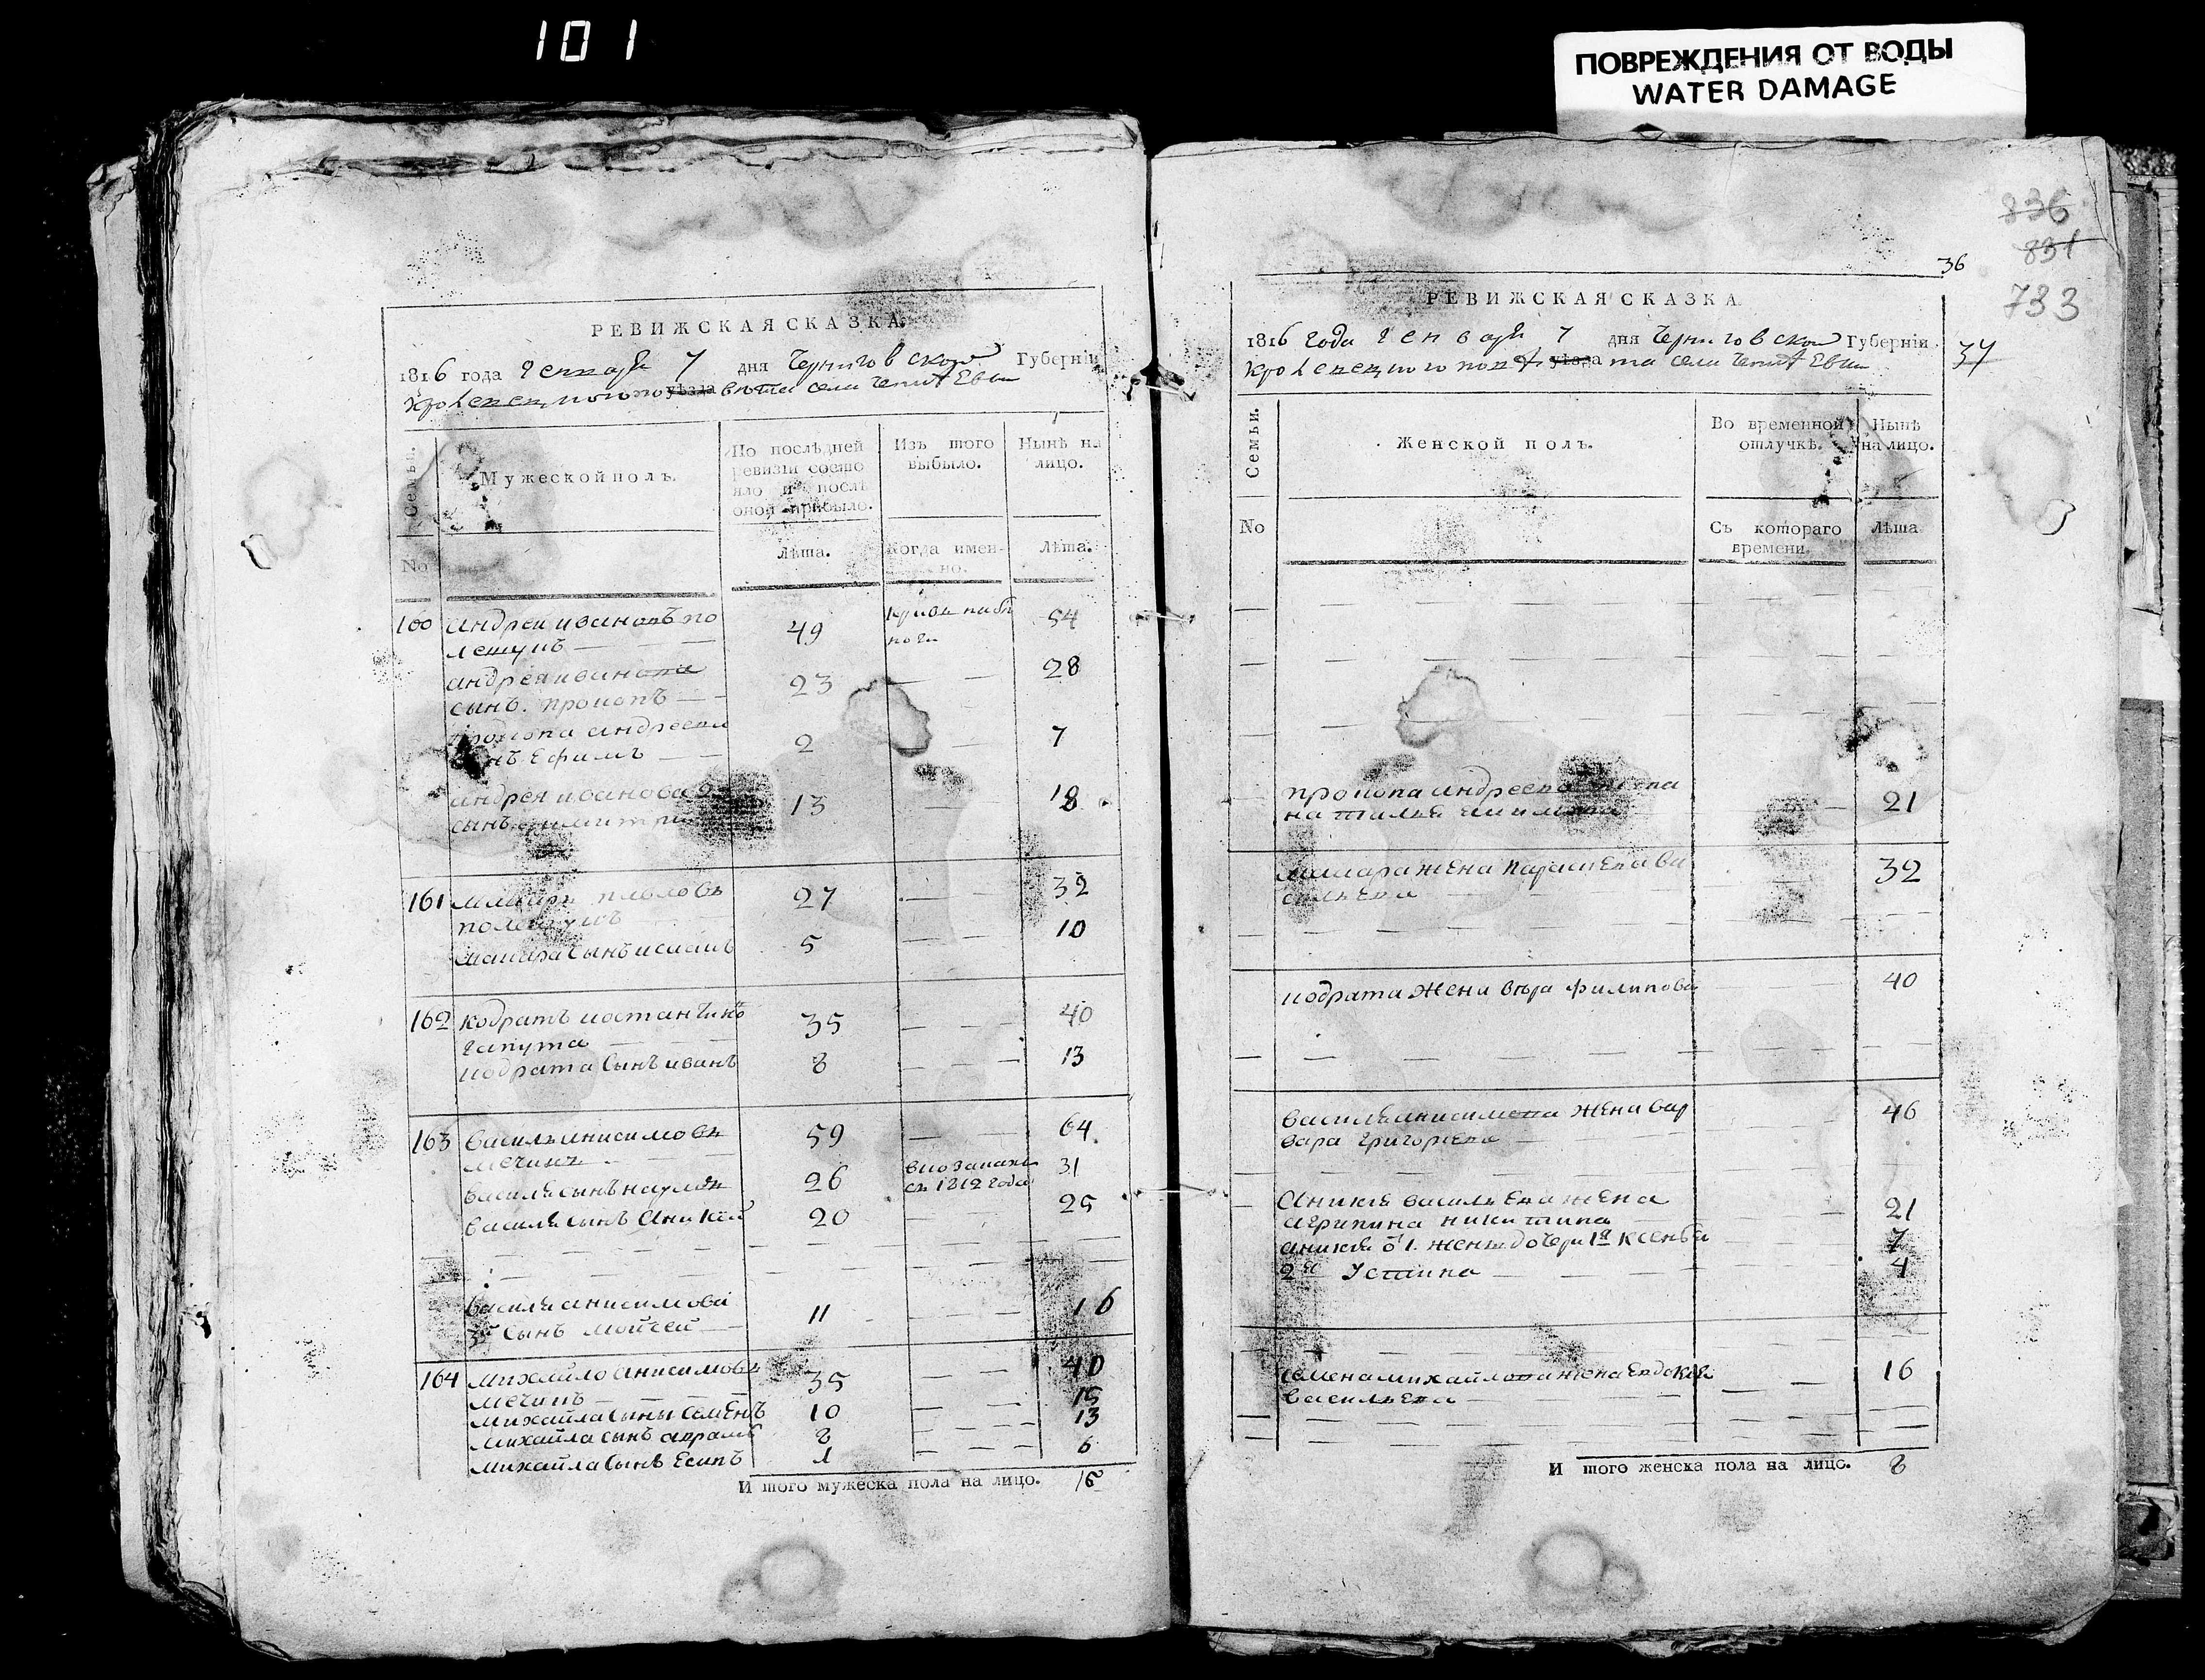 101
ПОВРЕЖДЕНИЯ ОТ ВОДЫ
WATER DAMAGE
РЕВИЖСКАЯ СКАЗКА
1816 года генваря 7 дня Черниговской Губерніи
уѣзда села
Семьи.
Мужеской полъ.
По послѣдней ревизіи состояло и послѣ оной прибыло.
Изъ того выбыло.
Нынѣ на лицо.
No
Лѣта.
Когда именно.
Лѣта.
160 андрей ивановъ по 49 54
лешукъ
андрея иванова 23 28
сынъ прокопъ
прокопа андреева 2 7
сынъ Ефимъ
андрея иванова 2 13 18
сынъ димитрій
161 макаръ павловъ 27 32
полешукъ
макара сынъ исакъ 5 10
162 кодратъ костантинов 35 40
гапута
кодрата сынъ иванъ 8 13
163 василь анисимовъ 59 64
мечикъ
василя сынъ наумъ 26 31
съ 1812 года
василя сынъ Аникій 20 25
василя анисимова 11 16
3й сынъ Мойсей
164 михайло анисимовъ 35 40
мечикъ
михайла сыны семенъ 10 15
михайла сынъ аврамъ 8 13
михайла сынъ Есипъ 1 6
И того мужеска пола на лицо. 16
836
831
733
36
РЕВИЖСКАЯ СКАЗКА
1816 года генваря 7 дня Черниговской Губерніи
37
уѣзда села
Семьи.
Женской полъ.
Во временной отлучкѣ.
Нынѣ на лицо.
No
Съ котораго времени.
Лѣта
прокопа андреева жена 21
наталья
макара жена параскева ва 32
сильева
кодрата жена вера филипова 40
василя анисимова жена вар 46
вара григорьева
Аникія васильева жена
агрипина никитина 21
аникія о 1. жены дочери 1я Ксенья 7
2я Устина 4
семена михайлова жена Евдокія 16
васильева
И того женска пола на лицо. 8